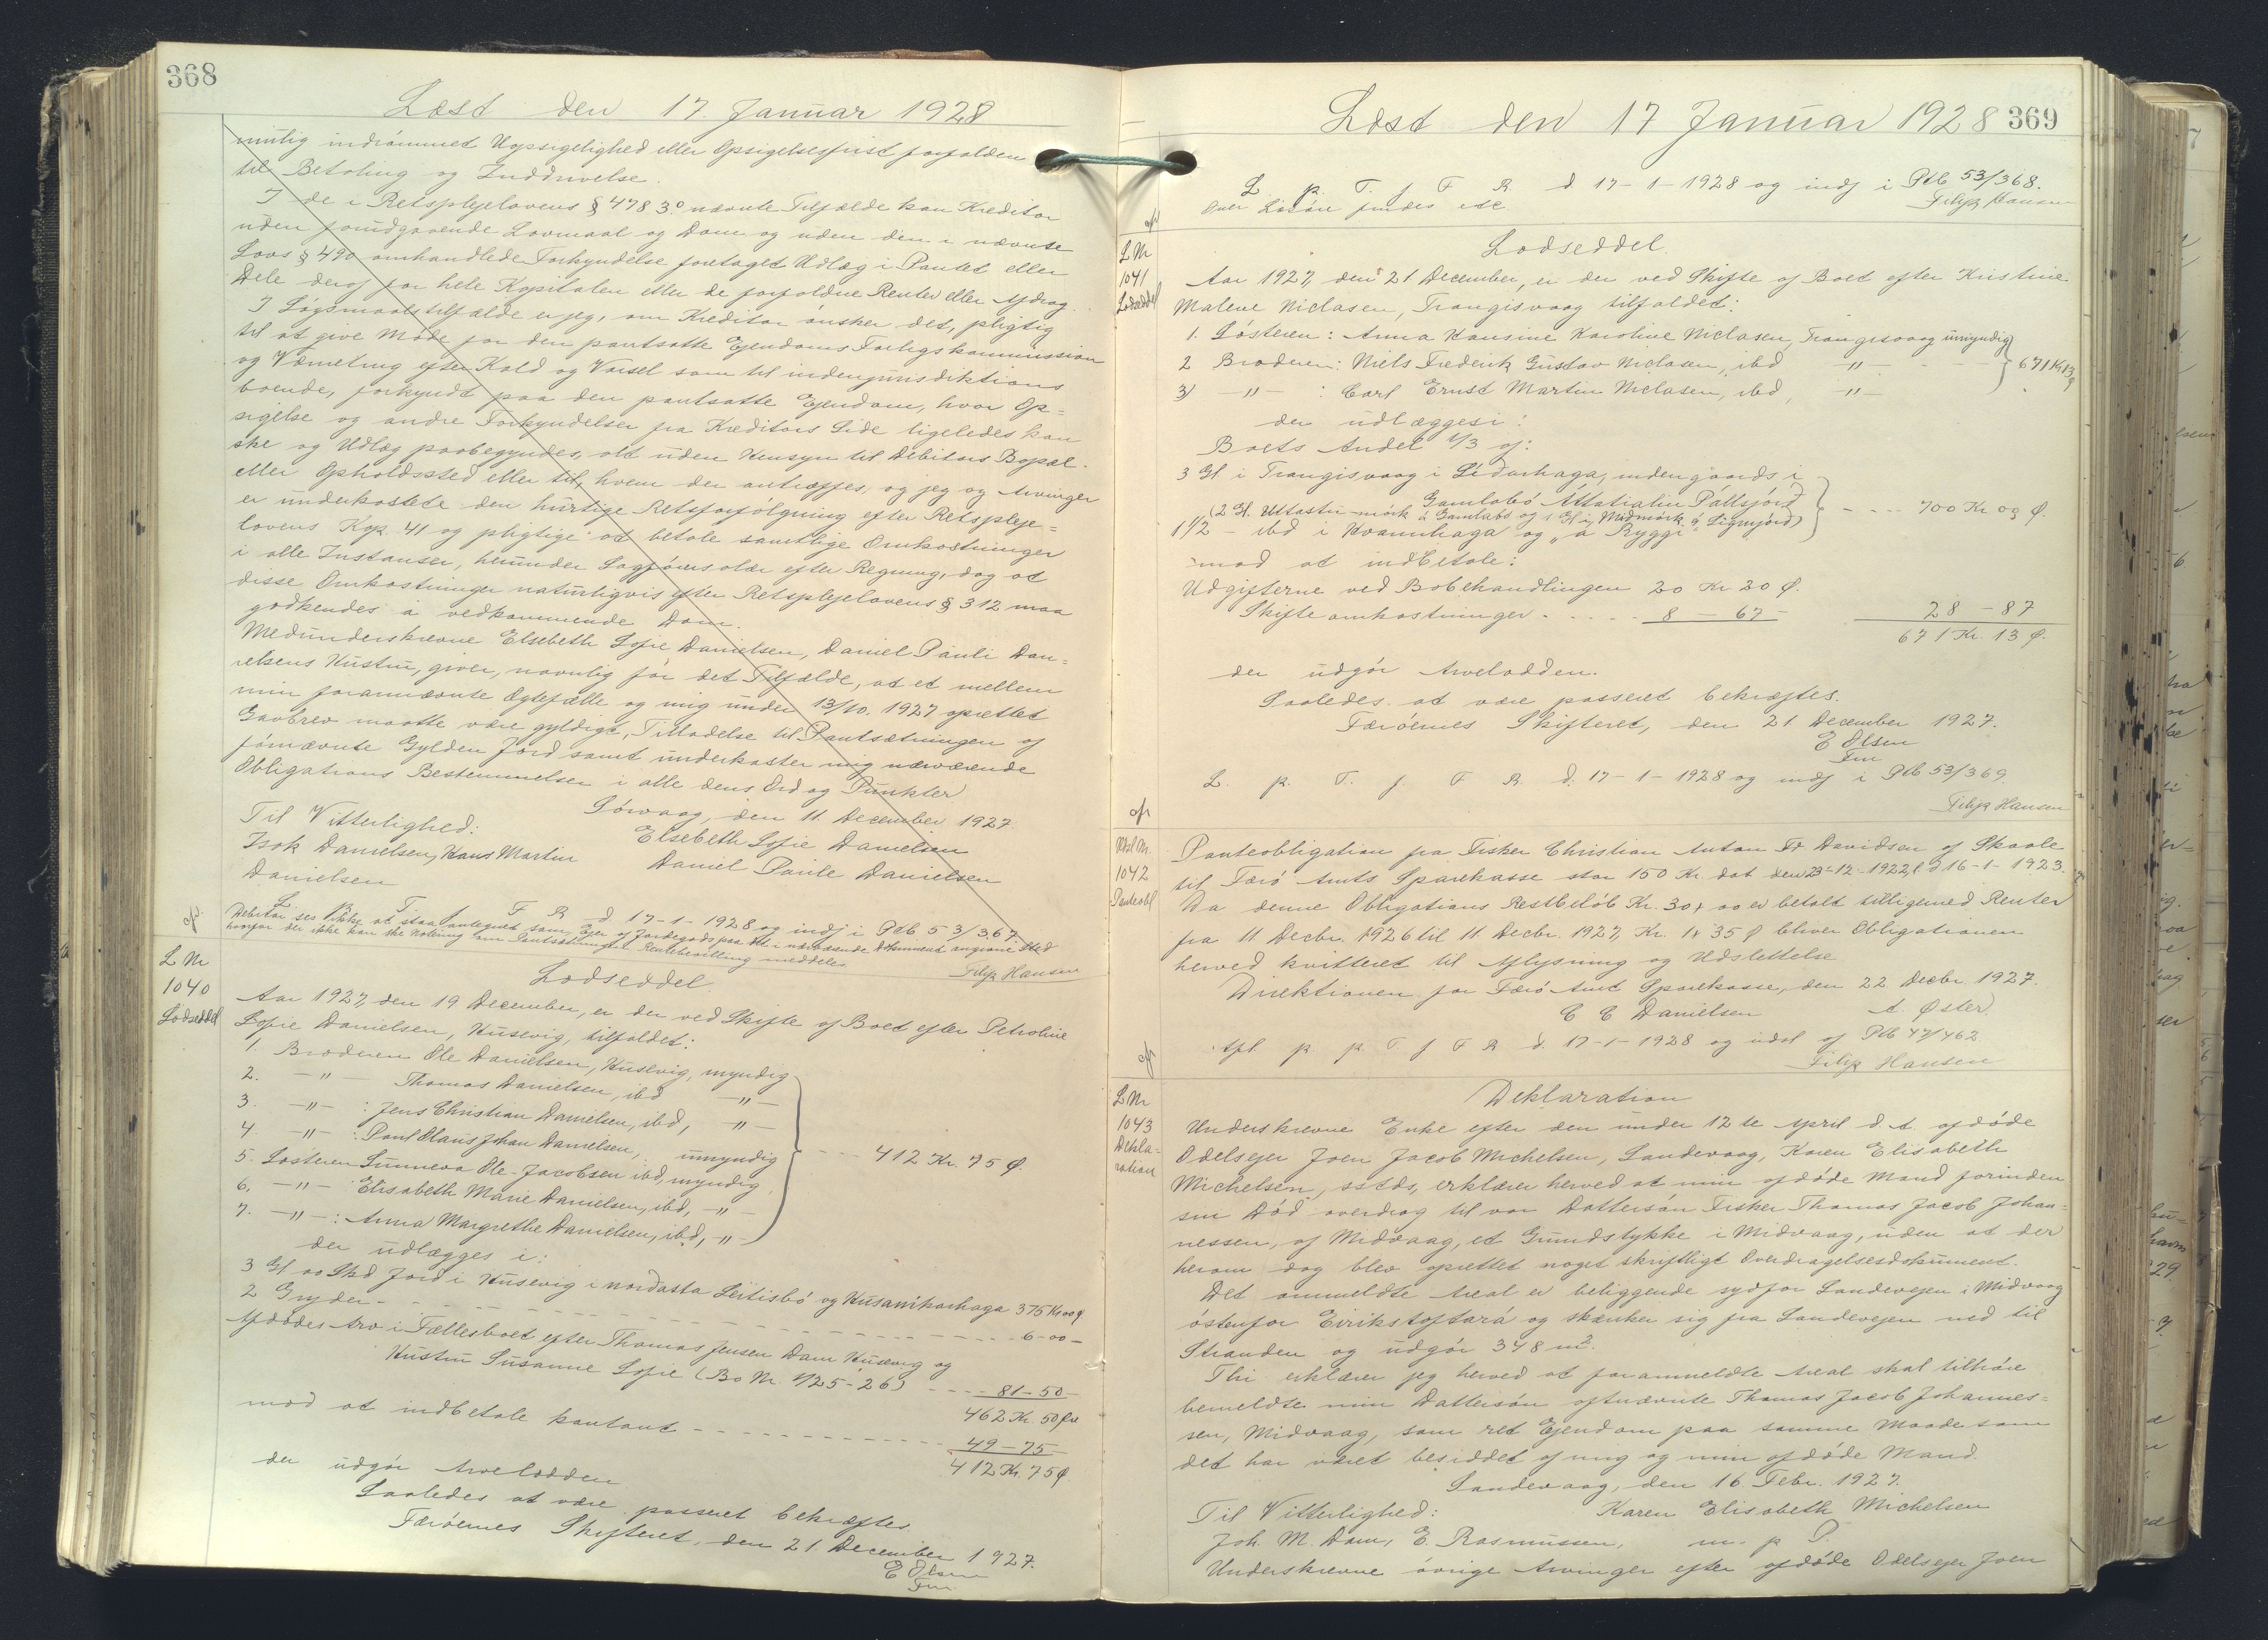 368
Læst den 17. Januar 1928
mulig indrømmet Uopsigelighed eller Opsigelsesfrist forfalden
til Betaling og Inddrivelse.
I de i Retsplejelovens § 478 3.° nævnte Tilfælde kan Kreditor
uden forudgaaende Lovmaal og Dom og uden den i nævnte
Lovs § 490 omhandlede Forkyndelse foretaget Udlæg i Pantet eller
Dele deraf for hele Kapitalen eller de forfaldne Renter eller Afdrag.
I Søgsmaalstilfælde er jeg, om Kreditor ønsker det, pligtig
til at give Møde for den pantsatte Ejendoms Forligskommission
og Værneting efter Kald og Varsel som til indenjurisdiktions
boende, forkyndt paa den pantsatte Ejendom, hvor Op=
sigelse og andre Forkyndelser fra Kreditors Side ligeledes kan
ske og Udlæg paabegyndes, alt uden Hensyn til Debitors Bopæl
eller Opholdssted eller til, hvem der antræffes, og jeg og Arvinger
er underkastede den hurtige Retsforfølgning efter Retspleje=
lovens Kap. 41 og pligtige at betale samtlige Omkostninger
i alle Instanser, herunder Sagførersalær efter Regning, dog at
disse Omkostninger naturligvis efter Retsplejelovens § 312 maa
godkendes a vedkommende Dom.
Medunderskrevne Elsebeth Sofie Danielsen, Daniel Pauli Dan=
ielsens Hustru, giver, navnlig for det Tilfælde, at et mellem
min forannævnte Ægtefælle og mig under 13/10. 1927 oprettet
Gavebrev maatte være gyldigt, Tilladelse til Pantsætningen af
førnævnte Gylden Jord samt underkaster mig nærværende
Obligations Bestemmelser i alle dens Ord og Punkter
Sørvaag, den 11. December 1927
Til Vitterlighed: Elsebeth Sofie Danielsen
Isak Danielsen, Hans Martin Daniel Paule Danielsen
Danielsen
L. p. T. f. F. R. d. 17-1-1928 og indf i Ptb 53/367.
Debitor ses ikke at staa antegnet som Ejer af Jordegods paa det i nærværende Dokument angivne Sted
hvorfor der ikke kan ske Notering om Pantsætning
Filip Hansen
L Nr
1040
Lodseddel
Lodseddel.
Aar 1927, den 19 December, er der ved Skifte af Boet efter Petroline
Sofie Danielsen, Husevig, tilfaldet:
1. Broderen Ole Danielsen, Husevig, myndig
2. -"- Thomas Danielsen, ibd -"-
3. -"- : Jens Christian Danielsen, ibd, -"-
4 -"- : Poul Olaus Johan Danielsen, umyndig
5. Søsteren Sunneva Ole-Jacobsen ibd, myndig
6, -"- Elisabeth Marie Danielsen, ibd, -"-
7. -"- : Anna Margrethe Danielsen, ibd, -"-
412 Kr. 75 Ø.
der udlægges i:
3 Gl oo Skd Jord i Husevig i nordasta Leitisbø og Husanhaga 375 Kr oo Ø
2 Gryder - - - 6-00-
Afdødes Arv i Fællesboet efter Thomas Jensen Dam Husevig og
Hustru Susanne Sofie (Bo Nr. 1/25-26) - - - 81-50-
462 Kr. 50 Øre
mod at indbetale kontant - - - 49-75
412 Kr. 75 Ø.
der udgør Arvelodden
Saaledes at være passeret bekræftes
Færøernes Skifteret, den 21 December 1927.
E Olsen
Fm
Læst den 17 Januar 1928 369
L. p. T. f. F R d 17-1-1928 og indf i Ptb 53/368.
Filip Hansen
L Nr
1041
Lodseddel
Lodseddel.
Aar 1927, den 21 December, er der ved Skifte af Boet efter Kristine
Malene Niclasen, Trangisvaag tilfaldet:
1. Søsteren: Anna Hansine Karoline Niclasen, Trangisvaag umyndig
2 Broderen: Niels Frederik Gustav Niclasen, ibd -"-
3) -"- : Carl Ernst Martin Niclasen, ibd, -"-
671 Kr 13 Ø
der udlægges i:
Boets Andel 1/3 af:
3 Gl i Trangisvaag i Sídarhaga, indengaards i
Gamlabø
1 1/2 - ibd i Hvannhaga og "á Ryggi"
- - - 700 Kr og Ø.
mod at indbetale:
Udgifterne ved Bobehandlingen 20 Kr 20 Ø.
Skifteomkostninger - - - 8 - 67 - 28 - 87
671 Kr. 13 Ø.
der udgør Arvelodden.
Saaledes at være passeret bekræftes.
Færøernes Skifteret, den 21 December 1927.
E Olsen
Fm
L. p. T. f. F R. d. 17-1-1928 og indf i Ptb 53/369
Filip Hansen
1042
Panteobl
Panteobligation fra Fisker Christian Anton Fr Davidsen af Skaale
til Færø Amts Sparekasse stor 150 Kr. dat den 23-12-1922, l d 16-1-1923.
Da denne Obligations Restbeløb Kr. 30, oo er betalt tilligemed Renter
fra 11 Decbr. 1926 til 11 Decbr. 1927, Kr. 1, 35 Ø bliver Obligationen
herved kvitteret til Aflysning og Udslettelse
Direktionen for Færø Amts Sparekasse, den 22 Decbr 1927.
C C Danielsen A. Øster.
Afl. p. p. T. f F R d. 17-1-1928 og udsl af Ptb 47/462
Filip Hansen
L Nr
1043
Dekla-
ration
Deklaration
Underskrevne Enke efter den under 12te April d. A. afdøde
Odelsejer Joen Jacob Michelsen, Sandevaag, Karen Elisabeth
Michelsen, ssteds, erklærer herved at min afdøde Mand forinden
sin Død overdrog til vor Dattersøn Fisker Thomas Jacob Johan=
nessen, af Midvaag, et Grundstykke i Midvaag, uden at der
herom dog blev oprettet noget skriftligt Overdragelsesdokument.
Det ommeldte Areal er beliggende sydfor Landevejen i Midvaag
østenfor Eirikstoftará og skænker sig fra Landevejen ned til
Stranden og udgør 348 m².
Thi erklærer jeg herved at forommeldte Areal skal tilhøre
bemeldte min Dattersøn oftnævnte Thomas Jacob Johannes=
sen, Midvaag, som ret Ejendom paa samme Maade som
det har været besiddet af mig og min afdøde Mand.
Sandevaag, den 16 Febr. 1927.
Til Vitterlighed: Karen Elisabeth Michelsen
Joh. M. Dam, E. Rasmussen, m. p. P.
Underskrevne øvrige Arvinger efter afdøde Odelsejer Joen